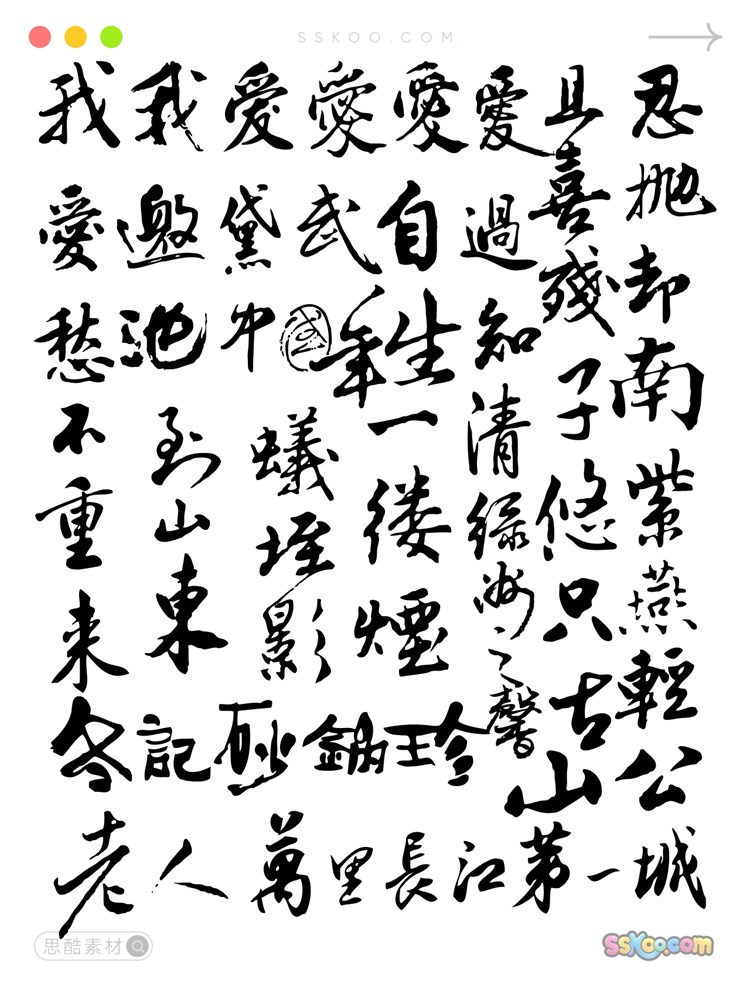 SSKOO.COM
我我愛愛愛愛且忍
愛邀黛武自過喜拋
愁池中國年生知殘却
不到蟻一清子南
重山垤縷綠悠紫
来東影煙之只燕
冬記砂鈉珍馨古輕
山公
老人萬里長江第一城
思酷素材
SSKOO.COM